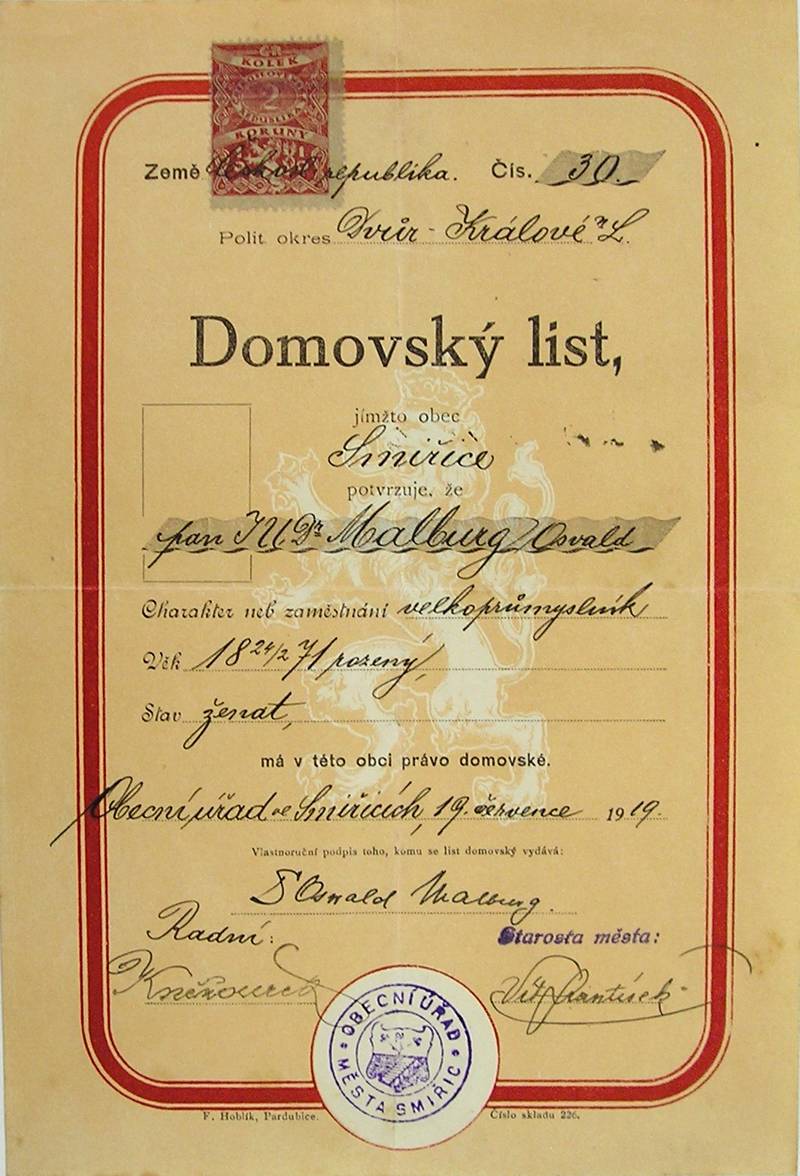 KOLEK
2
KORUNY
Země Českosl. republika. Čís. 30.
Polit. okres Dvůr-Králové n L.
Domovský list,
jímžto obec
Smiřice
potvrzuje, že
pan JUDr. Malburg Osvald
Charakter neb zaměstnání velkoprůmyslník
Věk 18 24/2 71 rozený,
Stav ženat,
má v této obci právo domovské.
Obecní úřad ve Smiřicích, 19. července 1919.
Vlastnoruční podpis toho, komu se list domovský vydává:
Dr Oswald Malburg.
Radní: Starosta města:
Vít František
OBECNÍ ÚŘAD
MĚSTA SMIŘIC
F. Hoblík, Pardubice. Číslo skladu 226.